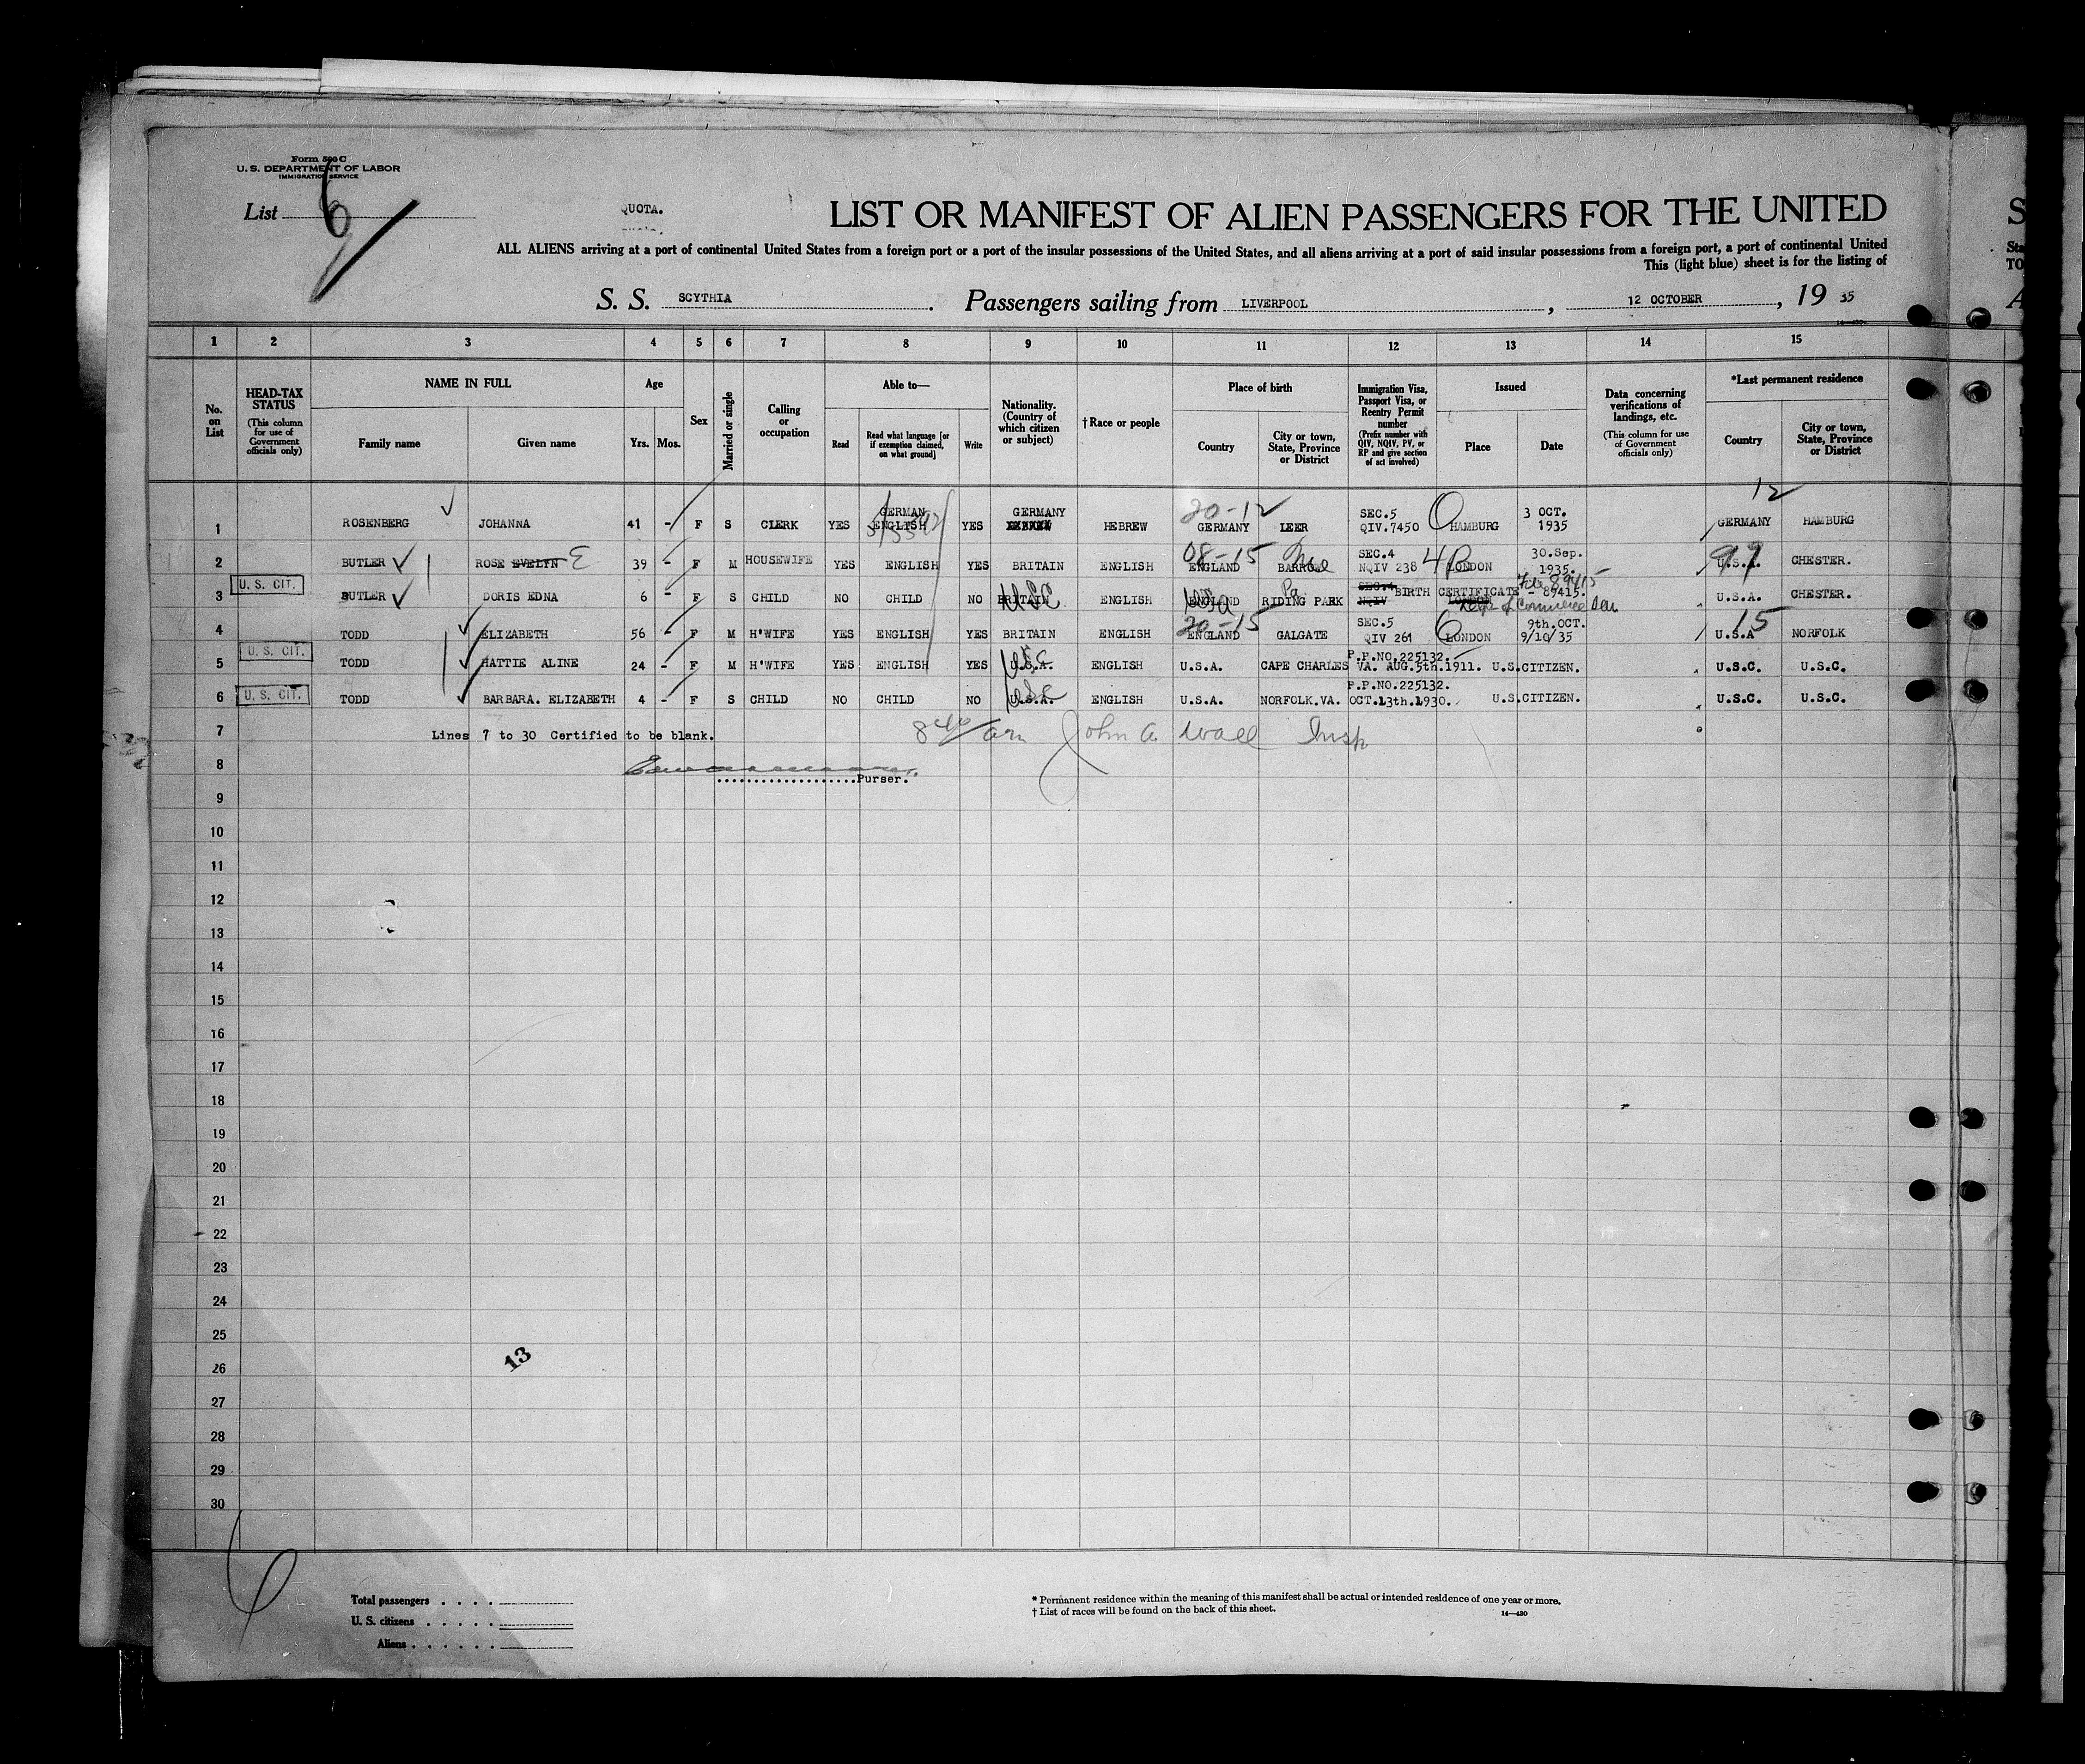 Form 500 C
U. S. DEPARTMENT OF LABOR
IMMIGRATION SERVICE
List 6
QUOTA.
LIST OR MANIFEST OF ALIEN PASSENGERS FOR THE UNITED
ALL ALIENS arriving at a port of continental United States from a foreign port or a port of the insular possessions of the United States, and all aliens arriving at a port of said insular possessions from a foreign port, a port of continental United
This (light blue) sheet is for the listing of
S. S. SCYTHIA. Passengers sailing from LIVERPOOL, 12 OCTOBER, 19 35
1 2 3 4 5 6 7 8 9 10 11 12 13 14 15
No. on List
HEAD-TAX STATUS (This column for use of Government officials only)
NAME IN FULL
Family name Given name
Age
Yrs. Mos.
Sex
Married or single
Calling or occupation
Able to—
Read
Read what language [or if exemption claimed, on what ground]
Write
Nationality. (Country of which citizen or subject)
†Race or people
Place of birth
Country
City or town, State, Province or District
Immigration Visa, Passport Visa, or Reentry Permit number (Prefix number with QIV, NQIV, PV, or RP and give section of act involved)
Issued
Place Date
Data concerning verifications of landings, etc. (This column for use of Government officials only)
*Last permanent residence
Country
City or town, State, Province or District
12
1 ROSENBERG JOHANNA 41 - F S CLERK YES GERMAN ENGLISH YES GERMANY HEBREW 20-12 GERMANY LEER SEC.5 QIV.7450 HAMBURG 3 OCT. 1935 GERMANY HAMBURG
2 BUTLER ROSE EVELYN E 39 - F M HOUSEWIFE YES ENGLISH YES BRITAIN ENGLISH 08-15 ENGLAND BARROW SEC.4 NQIV 238 LONDON 30.Sep. 1935. U.S.A. 99 CHESTER.
3 U. S. CIT. BUTLER DORIS EDNA 6 - F S CHILD NO CHILD NO BRITAIN USC ENGLISH ENGLAND USA RIDING PARK Pa SEC.4 NQIV BIRTH CERTIFICATE - 89415. LONDON File 89415 U.S.A. CHESTER.
4 TODD ELIZABETH 56 - F M H'WIFE YES ENGLISH YES BRITAIN ENGLISH 20-15 ENGLAND GALGATE SEC.5 QIV 261 LONDON 9th.OCT. 9/10/35 U.S.A 15 NORFOLK
5 U. S. CIT. TODD HATTIE ALINE 24 - F M H'WIFE YES ENGLISH YES U.S.A. USC ENGLISH U.S.A. CAPE CHARLES VA. P.P.NO.225132. AUG.5th.1911. U.S.CITIZEN. U.S.C. U.S.C.
6 U. S. CIT. TODD BARBARA. ELIZABETH 4 - F S CHILD NO CHILD NO U.S.A. USC ENGLISH U.S.A. NORFOLK.VA. P.P.NO.225132. OCT.13th.1930. U.S.CITIZEN. U.S.C. U.S.C.
7 Lines 7 to 30 Certified to be blank. 8 40/ am John A. Wall Insp
8 Purser.
9
10
11
12
13
14
15
16
17
18
19
20
21
22
23
24
25
26
13
27
28
29
30
6
Total passengers
U. S. citizens
Aliens
* Permanent residence within the meaning of this manifest shall be actual or intended residence of one year or more.
† List of races will be found on the back of this sheet.
14—430